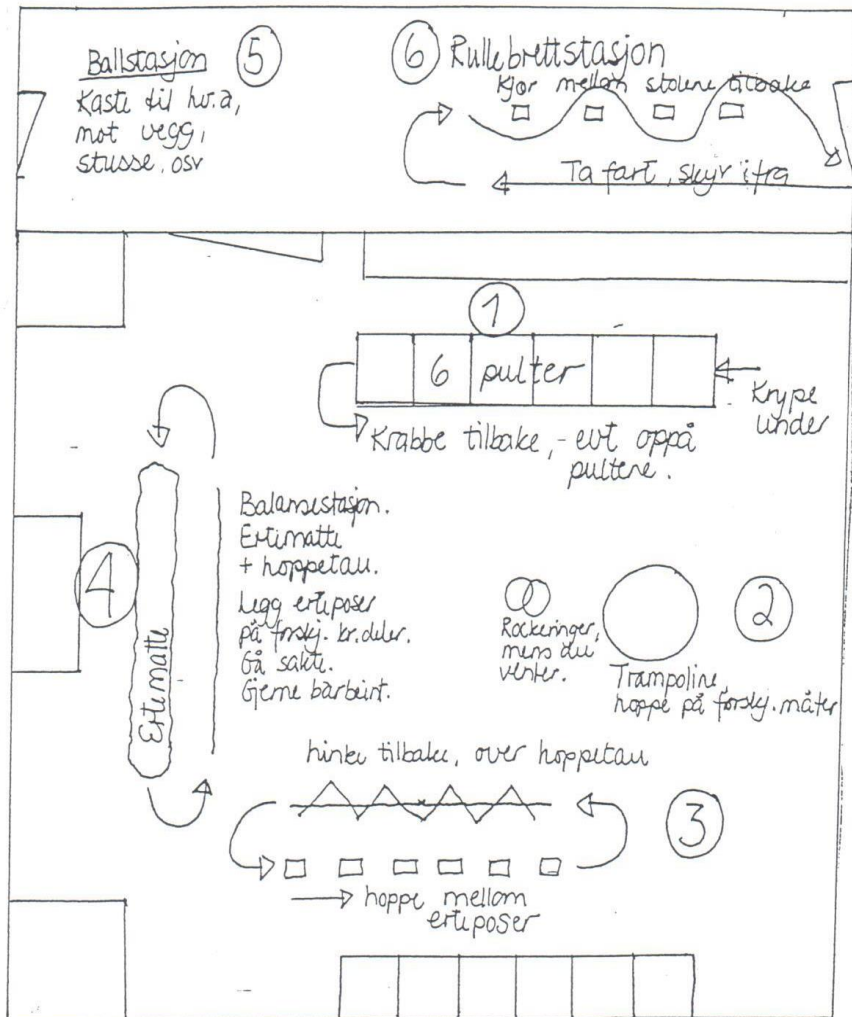 Ballstasjon 5
Kaste til hv.a,
mot vegg,
stusse, osv
6 Rullebrettstasjon
Kjør mellom stolene tilbake
Ta fart, skyv ifra
1
6 pulter
Krype
under
Krabbe tilbake, - evt oppå
pultene.
4
Ertematte
Balansestasjon.
Ertematte
+ hoppetau.
Legg erteposer
på forskj. kr.deler.
Gå sakte.
Gjerne barbeint.
Rockeringer,
mens du
venter.
2
Trampoline,
hoppe på forskj. måter
hinke tilbake, over hoppetau
3
hoppe mellom
erteposer